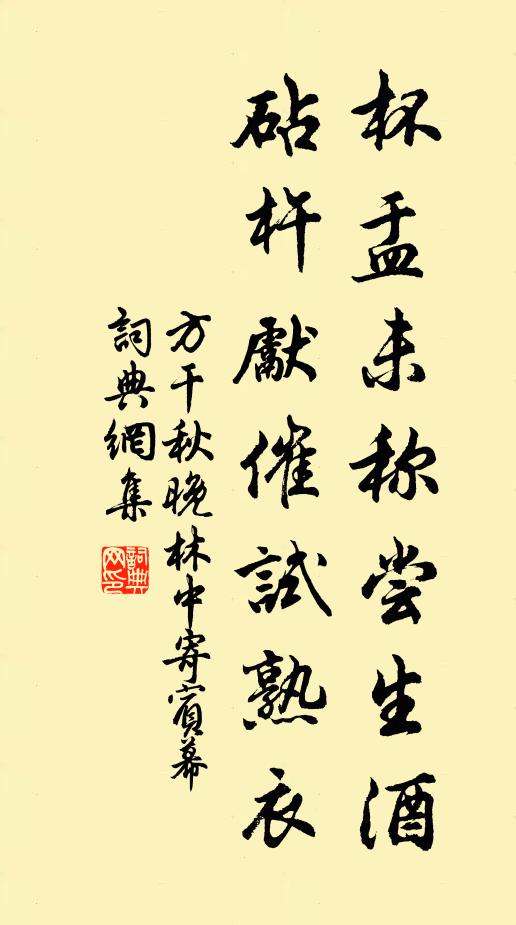 杯盂未称尝生酒
砧杵獻催試熟衣
方干秋晚林中寄賓幕
詞典網集
詞典網印